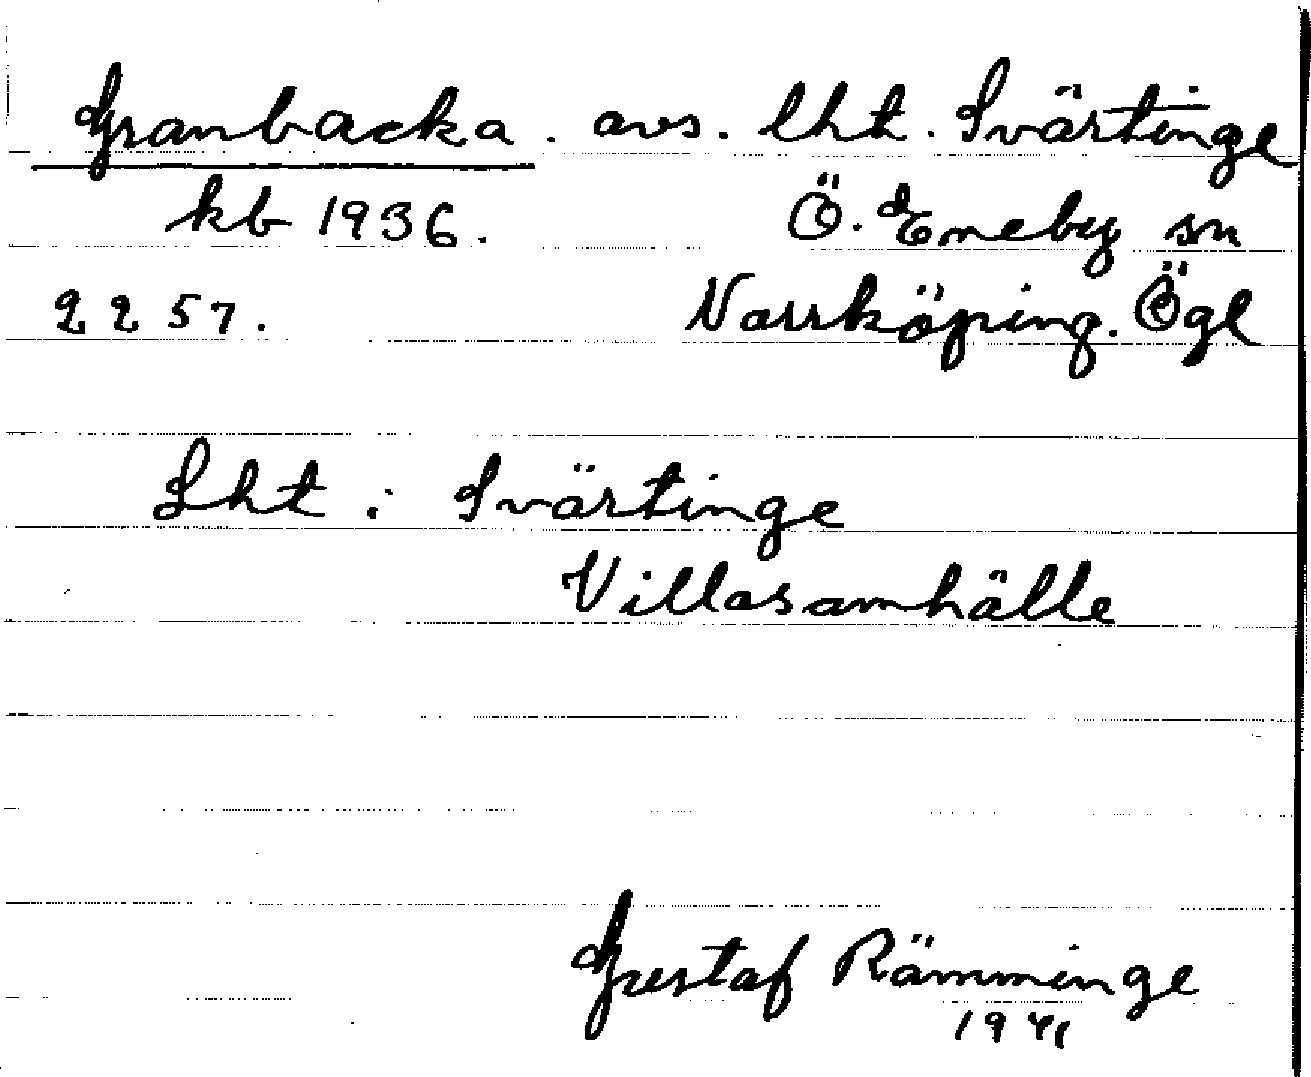 Granbacka. avs. lht. Svärtinge
kb 1936. Ö. Eneby sn
2257. Norrköping. Ögl
Lht: Svärtinge
Villasamhälle
Gustaf Rämminge
1941